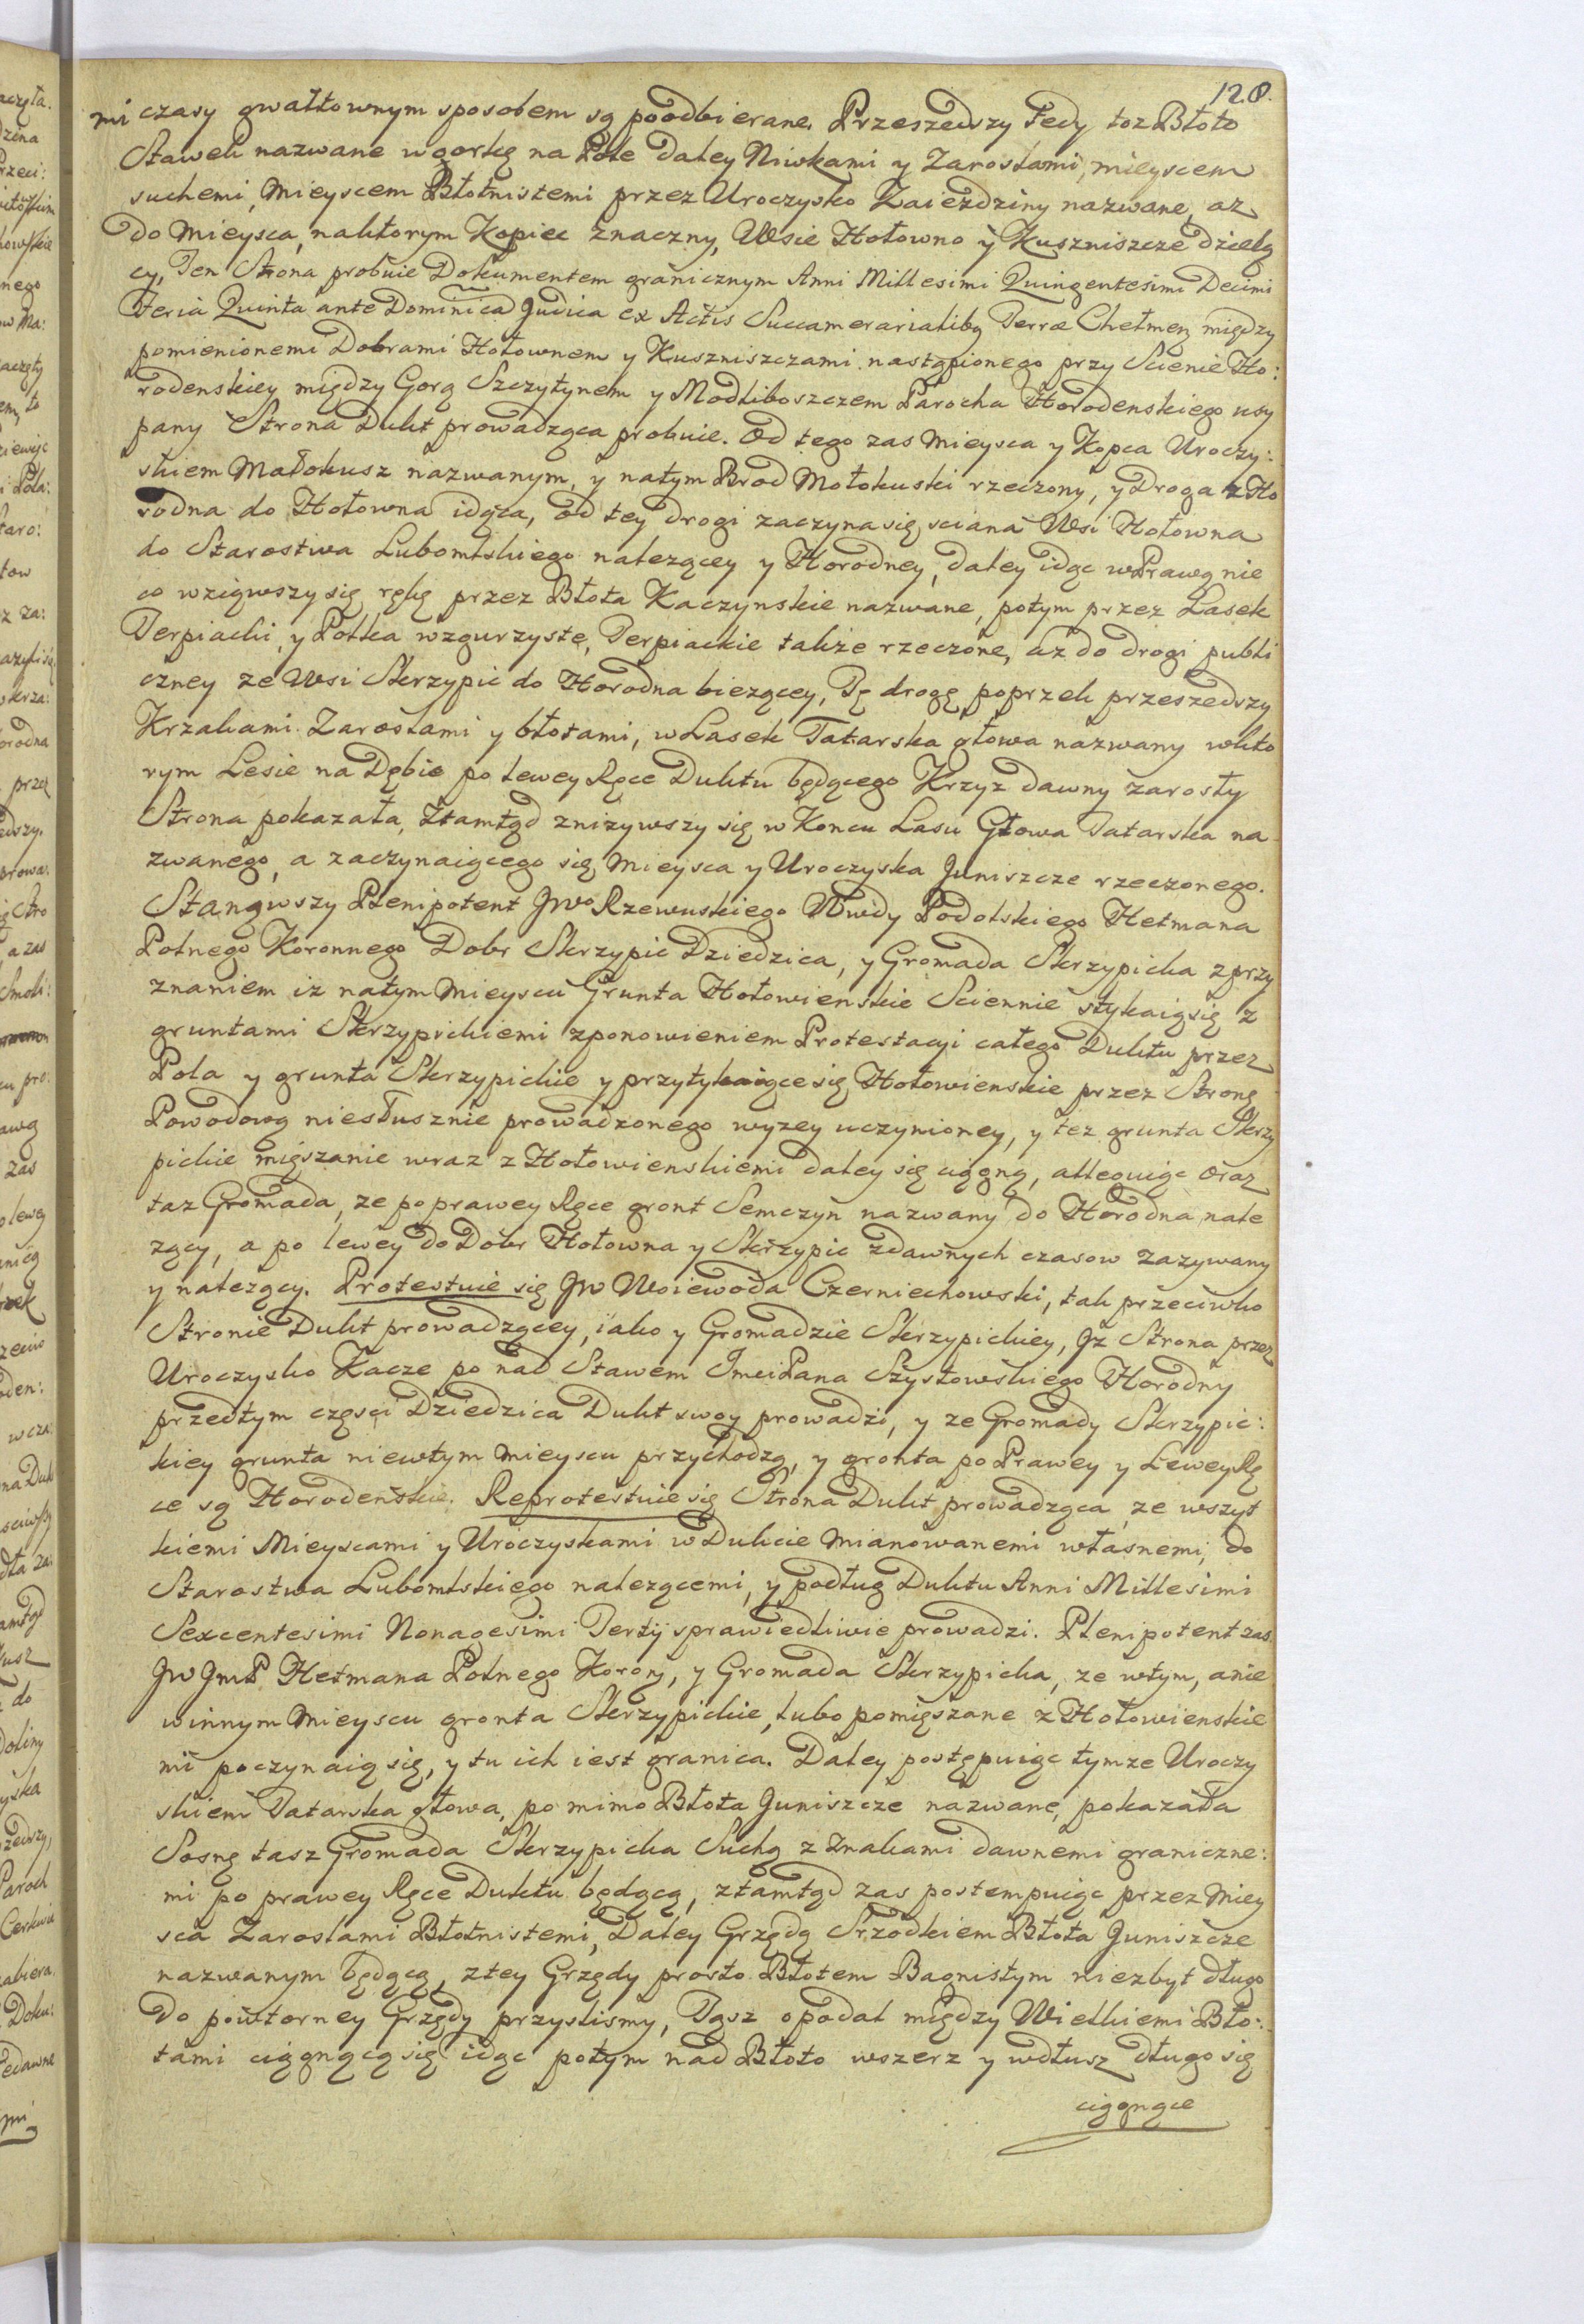 120.
mi czasy gwałtownym sposobem są poodbierane. Przeszedszy Tedy toz Błoto
Stawek nazwane w gorkę na Pole daley Niwkami y Zaroslami, mieyscem
suchemi, mieyscem Błotnistemi przez Uroczysko Zaiezdziny nazwane, az
do Mieysca, naktorym Kopiec znaczny, Wsie Hołowno y Kuszniszcze dzielą
cy, Ten Strona probuie Dokumentem granicznym Anni Millesimi Quingentesimi Decimi
Feria Quinta ante Dominica Judica ex Actis Succamerarialibq Terræ Chełmen między
pomienionemi Dobrami Hołownem y Kuszniszczami nastąpionego przy Scienie Ho:
rodenskiey między Gorą Szczytynem y Modliboszczem Parocha Horodenskiego usy
pany Strona Dukt prowadząca probuie. Od tego zas Mieysca y Kopca Uroczy:
skiem Małokusz nazwanym, y natym Brod Mołokuski rzeczony, y Droga z Ho
rodna do Hołowna idąca, od tey drogi zaczyna się sciana Wsi Hołowna
do Starostwa Lubomlskiego nalezącey y Horodney, daley idąc w Prawą nie
co wziąwszy się rękę przez Błota Kaczynskie nazwane, potym przez Lasek
Terpiacki, y Polka wzgurzyste, Terpiackie także rzeczone, aż do drogi publi
czney ze Wsi Skrzypic do Horodna biezącey, Tę drogę poprzek przeszedszy
Krzakami Zaroslami y błotami, w Lasek Tatarska głowa nazwany wkto
rym Lesie na Dębie po lewey Ręce Duktu będącego Krzyz dawny zarosły
Strona pokazała, Ztamtąd znizywszy się w Koncu Lasu Głowa Tatarska na
zwanego, a zaczynaiącego się Mieysca y Uroczyska Juniszcze rzeczonego.
Stanąwszy Plenipotent Jwo Rzewuskiego Wwdy Podolskiego Hetmana
Polnego Koronnego Dobr Skrzypic Dziedzica, y Gromada Skrzypicka z przy
znaniem iz natym Mieyscu Grunta Hołowienskie Sciennie stykaią się z
gruntami Skrzypickiemi z ponowieniem Protestacyi całego Duktu przez
Pola y grunta Skrzypickie y przytykaiące się Hołowienskie przez Stronę
Powodową niesłusznie prowadzonego wyzey uczynioney, y tez grunta Skrzy
pickie mięszanie wraz z Hołowienskiemi daley się ciągną, alleguiąc oraz
taz Gromada, ze po prawey Ręce gront Semczyn nazwany do Horodna nale
zący, a po lewey do Dobr Hołowna y Skrzypic zdawnych czasow zazywany
y nalezący. Protestuie się Jw Woiewoda Czerniechowski, tak przeciwko
Stronie Dukt prowadzącey, iako y Gromadzie Skrzypickiey, Jz Strona przez
Uroczysko Kacze po nad Stawem Jmci Pana Szystowskiego Horodny
przedtym częsci Dziedzica Dukt swoy prowadzi, y ze Gromady Skrzypic:
kiey grunta niewtym mieyscu przychodzą, y gronta po Prawey y Lewey Rę
ce są Horodeńskie. Reprotestuie się Strona Dukt prowadząca, ze wszyt
kiemi Mieyscami y Uroczyskami w Dukcie mianowanemi własnemi, do
Starostwa Lubomlskiego nalezącemi, y podług Duktu Anni Millesimi
Sexcentesimi Nonagesimi Tertij sprawiedliwie prowadzi. Plenipotent zas
Jw JmP. Hetmana Polnego Korony, y Gromada Skrzypicka, ze wtym, anie
winnym Mieyscu gronta Skrzypickie, lubo pomięszane z Hołowienskie
mi poczynaią się, y tu ich iest granica. Daley postępuiąc tymze Uroczy
skiem Tatarska głowa, po mimo Błota Juniszcze nazwane, pokazała
Sosnę tasz Gromada Skrzypicka Suchą z Znakami dawnemi graniczne:
mi po prawey Ręce Duktu będącą, ztamtąd zas postempuiąc przez Miey
sca Zaroslami Błotnistemi, Daley Grzędą Srzodkiem Błota Juniszcze
nazwanym będącą, z tey Grzędy prosto Błotem Bagnistym niezbyt długo
Do powtorney Grzędy przyslismy, Tąsz opodal między Wielkiemi Bło:
tami ciągnącą się idąc potym nad Błoto wszerz y wdłusz długo się
ciągnące